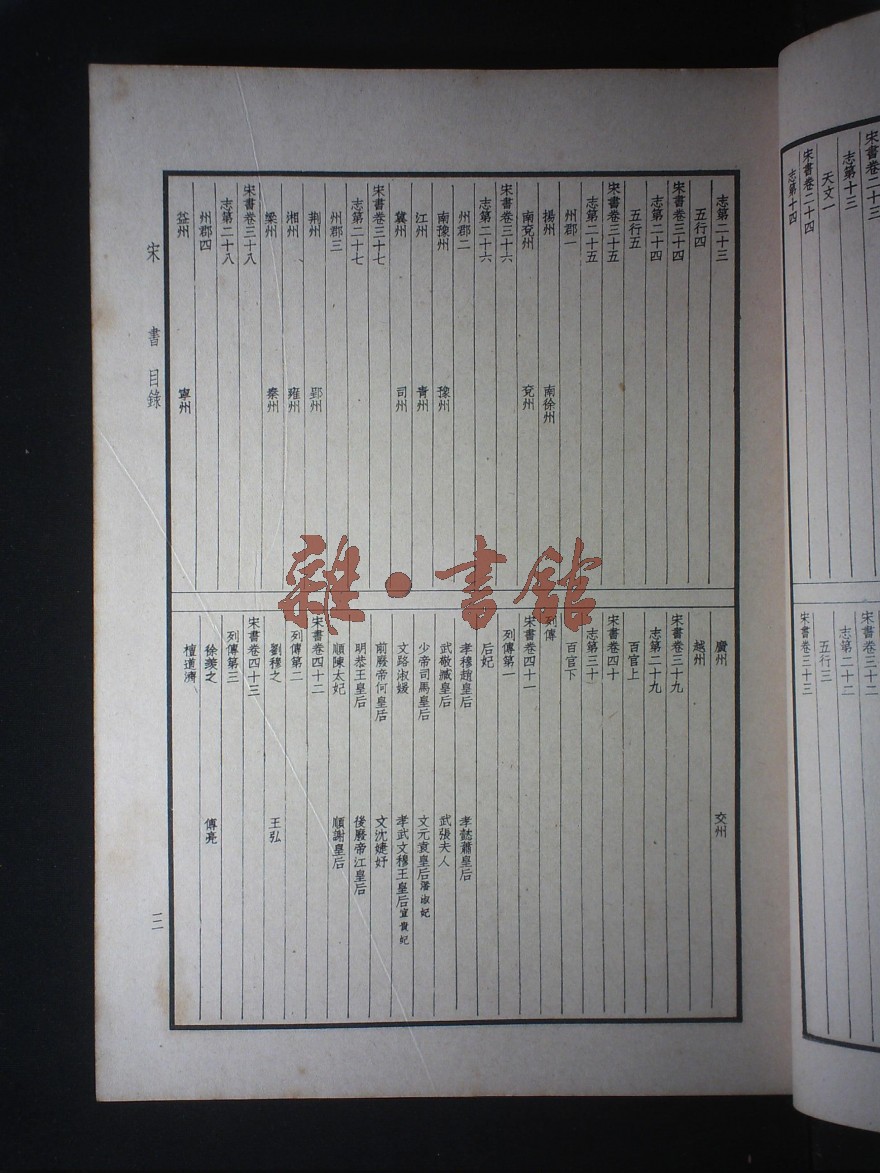 宋書卷二十三
志第十三
天文一
宋書卷二十四
志第十四
宋書卷三十二
志第二十二
五行三
宋書卷三十三
志第二十三
五行四
宋書卷三十四
志第二十四
五行五
宋書卷三十五
志第二十五
州郡一
揚州 南徐州
南兗州 兗州
宋書卷三十六
志第二十六
州郡二
南豫州 豫州
江州 青州
冀州 司州
宋書卷三十七
志第二十七
州郡三
荆州 郢州
湘州 雍州
梁州 秦州
宋書卷三十八
志第二十八
州郡四
益州 寧州
廣州 交州
越州
宋書卷三十九
志第二十九
百官上
宋書卷四十
志第三十
百官下
列傳
宋書卷四十一
列傳第一
后妃
孝穆趙皇后 孝懿蕭皇后
武敬臧皇后 武張夫人
少帝司馬皇后 文元袁皇后潘淑妃
文路淑媛 孝武文穆王皇后宣貴妃
前廢帝何皇后 文沈婕妤
明恭王皇后 後廢帝江皇后
順陳太妃 順謝皇后
宋書卷四十二
列傳第二
劉穆之 王弘
宋書卷四十三
列傳第三
徐羨之 傅亮
檀道濟
宋書 目錄
三
雜·書館